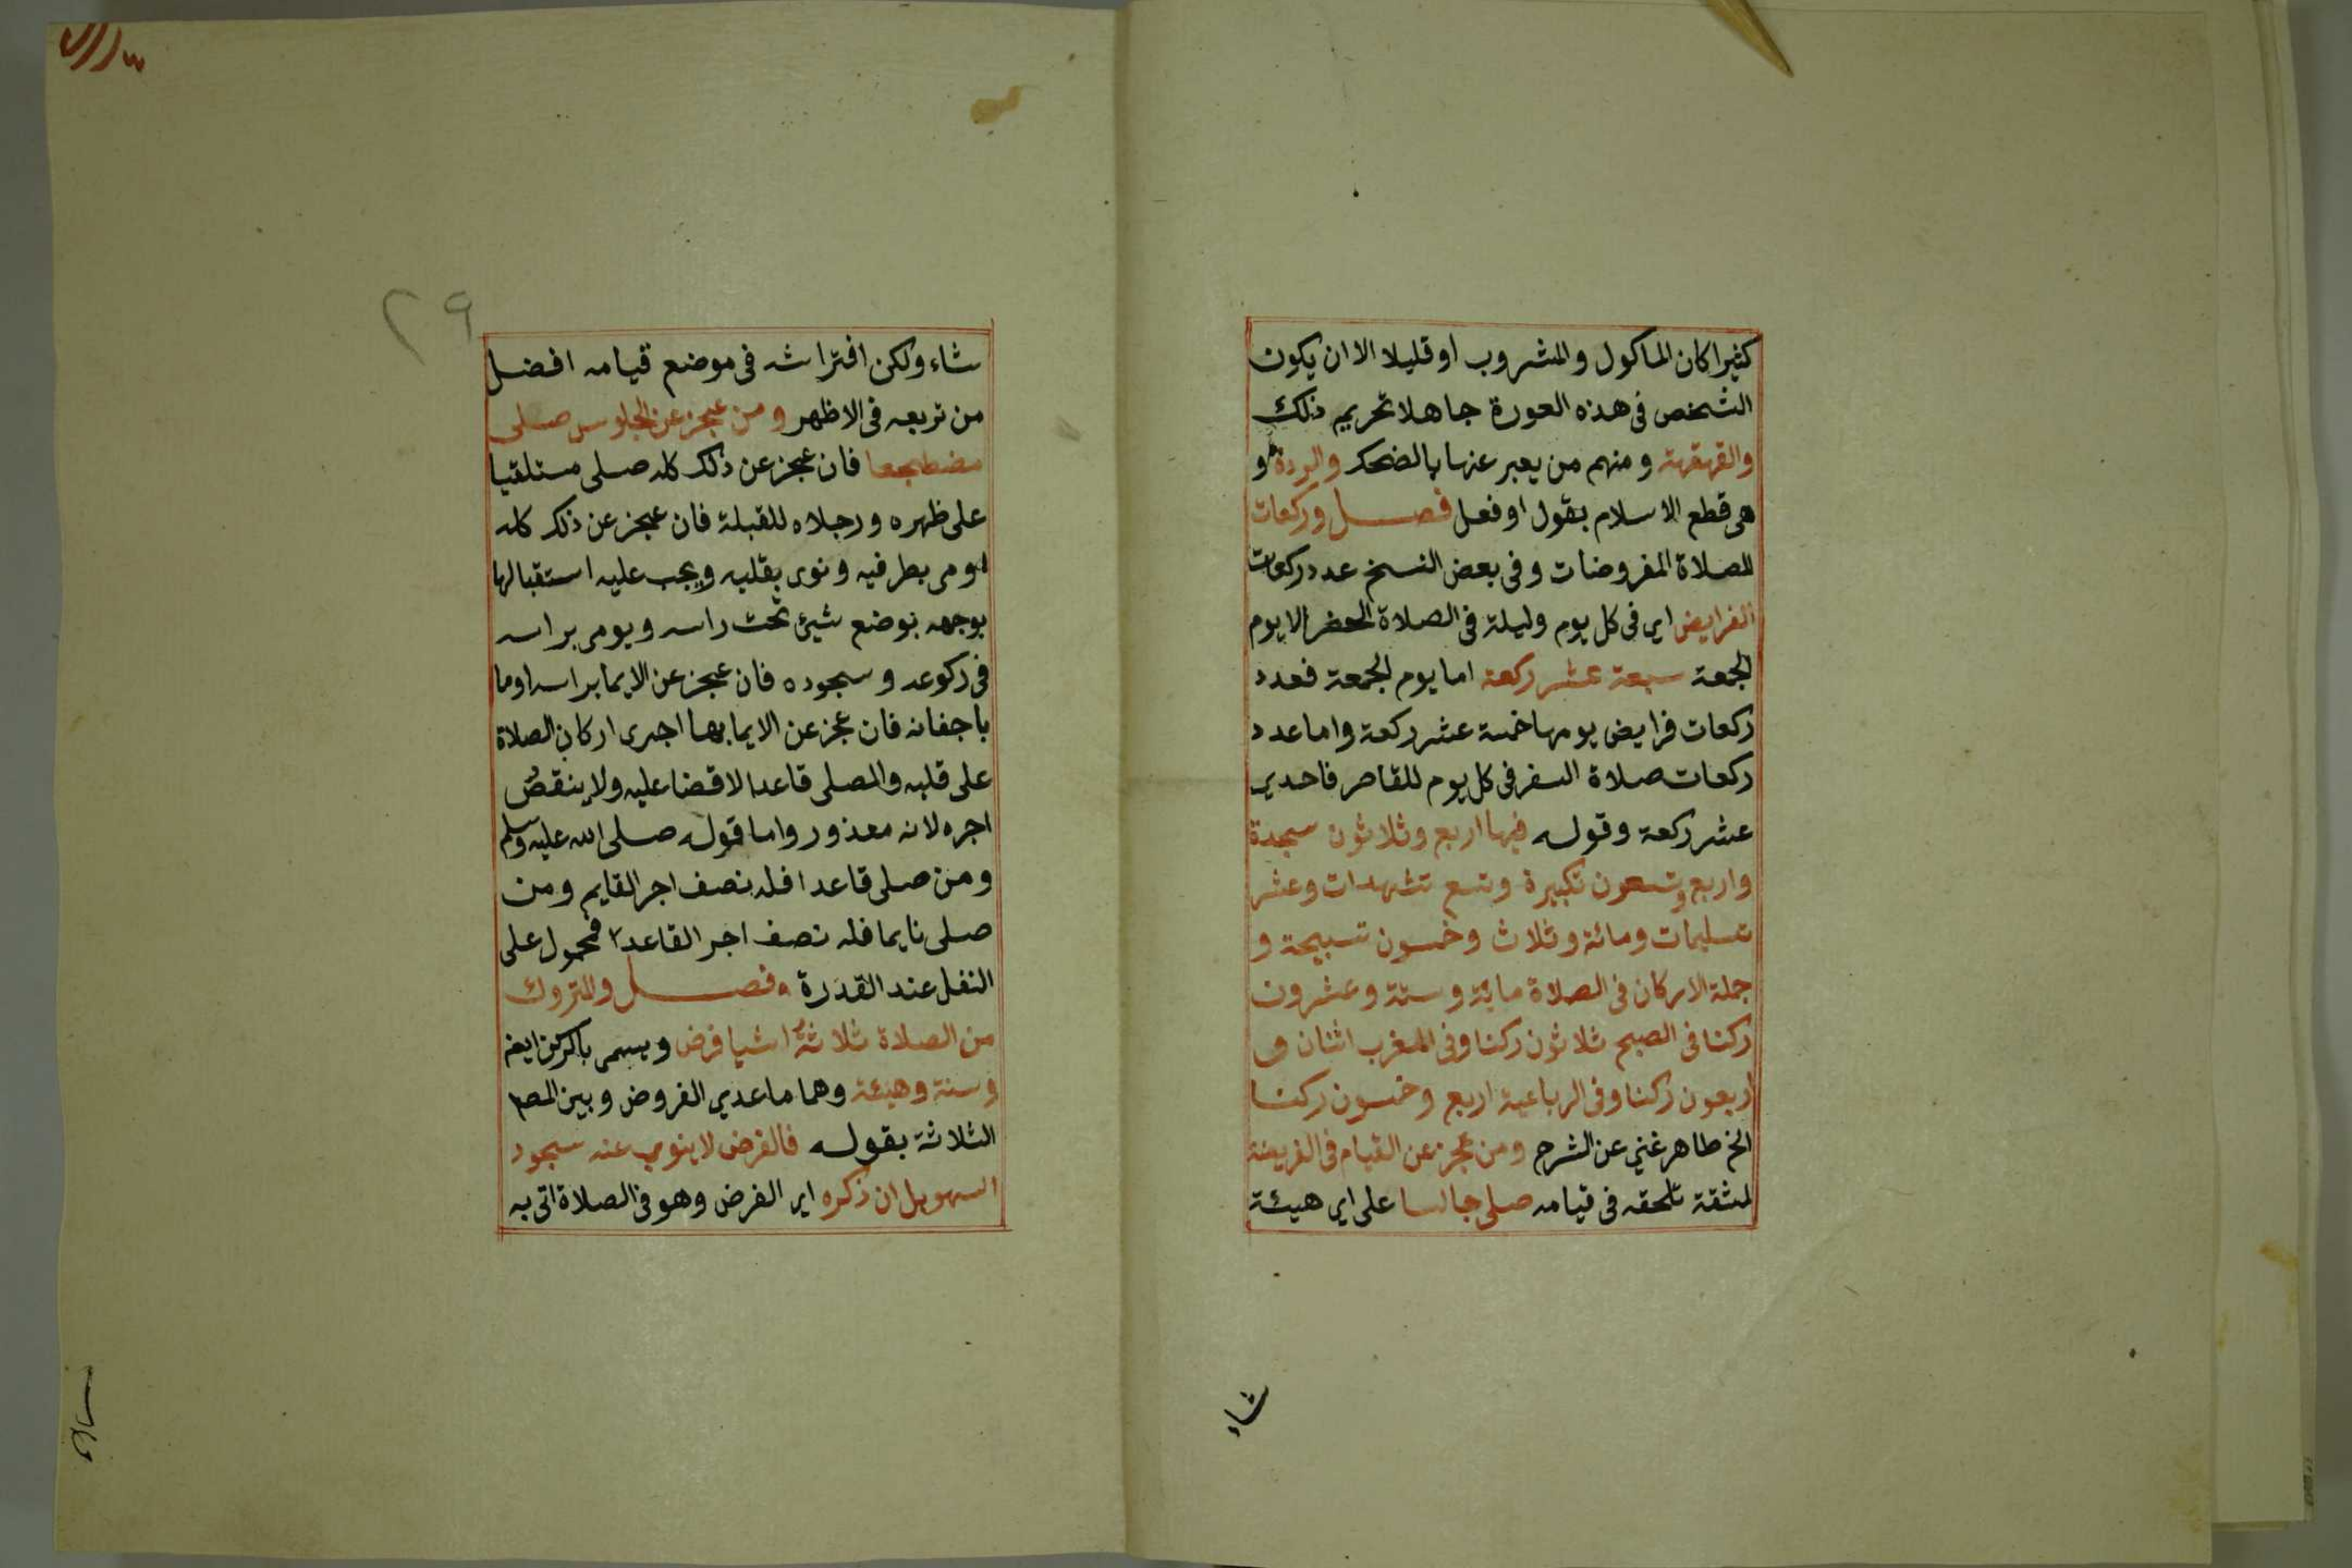 كثيرا كان الماكول والمشروب او قليلا الا ان يكون
الشخص فى هذه العورة جاهلا تحريم ذلك
والقهقهة ومنهم من يعبر عنها بالضحك والردة و
هى قطع الاسلام بقول او فعل فصل وركعات
الصلاة المفروضات وفى بعض النسخ عدد ركعات
الفرايض اى فى كل يوم وليلة فى الصلاة الحضر الا يوم
الجمعة سبعة عشر ركعة اما يوم الجمعة فعدد
ركعات فرايض يومها خمسة عشر ركعة واما عدد
ركعات صلاة السفر فى كل يوم للقاصر فاحدي
عشر ركعة وقوله فيها اربع وثلاثون سجدة
واربع وتسعون تكبيرة وتسع تشهدات وعشر
تسليمات ومائة وثلاث وخمسون تسبيحة و
جملة الاركان فى الصلاة ماية وستة وعشرون
ركنا فى الصبح ثلاثون ركنا وفى المغرب اثنان و
اربعون ركنا وفى الرباعية اربع وخمسون ركنا
الخ ظاهر غني عن الشرح ومن عجز عن القيام فى الفريضة
لمشقة تلحقه فى قيامه صلى جالسا على اى هيئة
شاء
٢٩
شاء ولكن افتراشه فى موضع قيامه افضل
من تربعه فى الاظهر ومن عجز عن الجلوس صلى
مضطجعا فان عجز عن ذلك كله صلى مستلقيا
على ظهره ورجلاه للقبلة فان عجز عن ذلك كله
اومى بطرفيه ونوى بقلبه ويجب عليه استقبالها
بوجهه بوضع شيئ تحت راسه ويومى براسه
فى ركوعه وسجوده فان عجز عن الايما براسه اوما
باجفانه فان عجز عن الايما بها اجرى اركان الصلاة
على قلبه والمصلى قاعدا لا قضا عليه ولا ينقص
اجره لانه معذور واما قوله صلى الله عليه وسلم
ومن صلى قاعدا فله نصف اجر القايم ومن
صلى نايما فله نصف اجر القاعد فمحول على
النفل عند القدرة فصل والمتروك
من الصلاة ثلاثة اشيا فرض ويسمى بالركن ايضا
وسنة وهيئة وهما ماعدي الفروض وبين المص
الثلاثة بقوله فالفرض لا ينوي عنه سجود
السهو بل ان ذكره اى الفرض وهو فى الصلاة اتى به